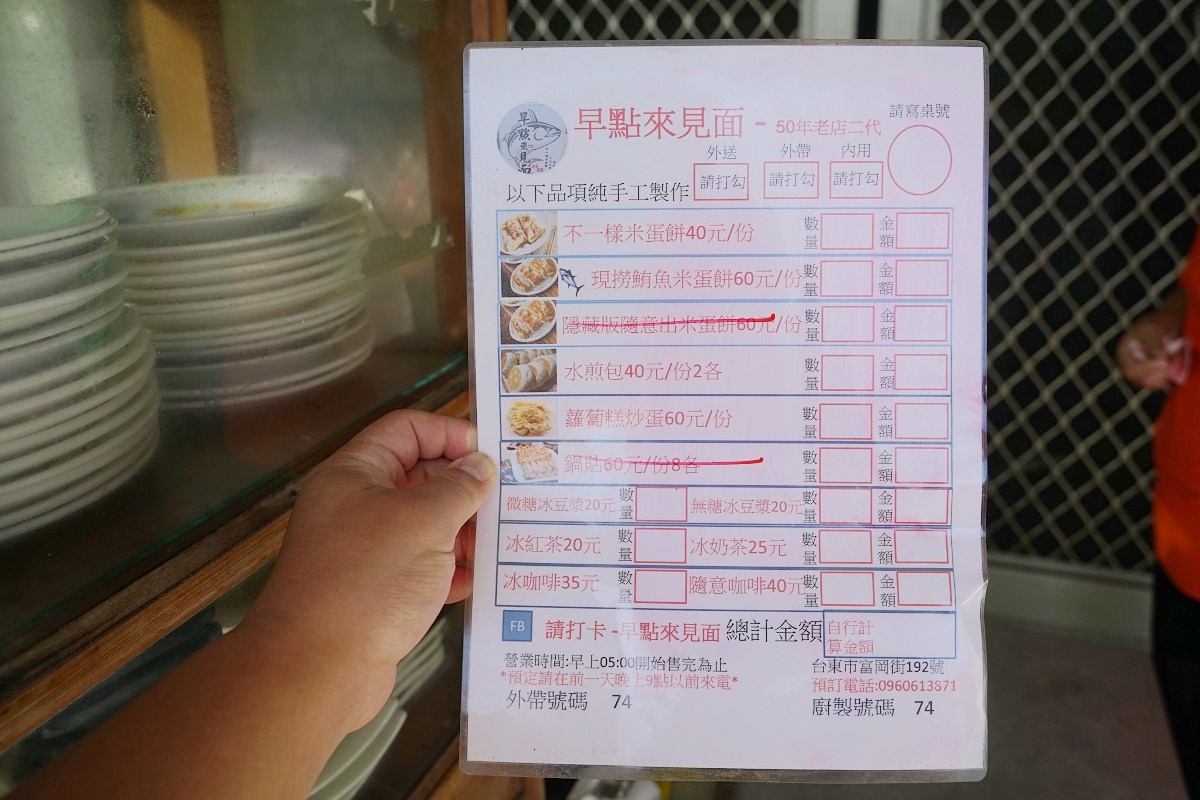 早點來見面
早點來見面 - 50年老店二代
請寫桌號
外送 外帶 內用
以下品項純手工製作 請打勾 請打勾 請打勾
不一樣米蛋餅40元/份 數量 金額
現撈鮪魚米蛋餅60元/份 數量 金額
隱藏版隨意出米蛋餅60元/份 數量 金額
水煎包40元/份2各 數量 金額
蘿蔔糕炒蛋60元/份 數量 金額
鍋貼60元/份8各 數量 金額
微糖冰豆漿20元 數量 無糖冰豆漿20元 數量 金額
冰紅茶20元 數量 冰奶茶25元 數量 金額
冰咖啡35元 數量 隨意咖啡40元 數量 金額
FB 請打卡 -早點來見面 總計金額 自行計算金額
營業時間:早上05:00開始售完為止 台東市富岡街192號
*預定請在前一天晚上9點以前來電* 預訂電話:0960613871
外帶號碼 74 廚製號碼 74